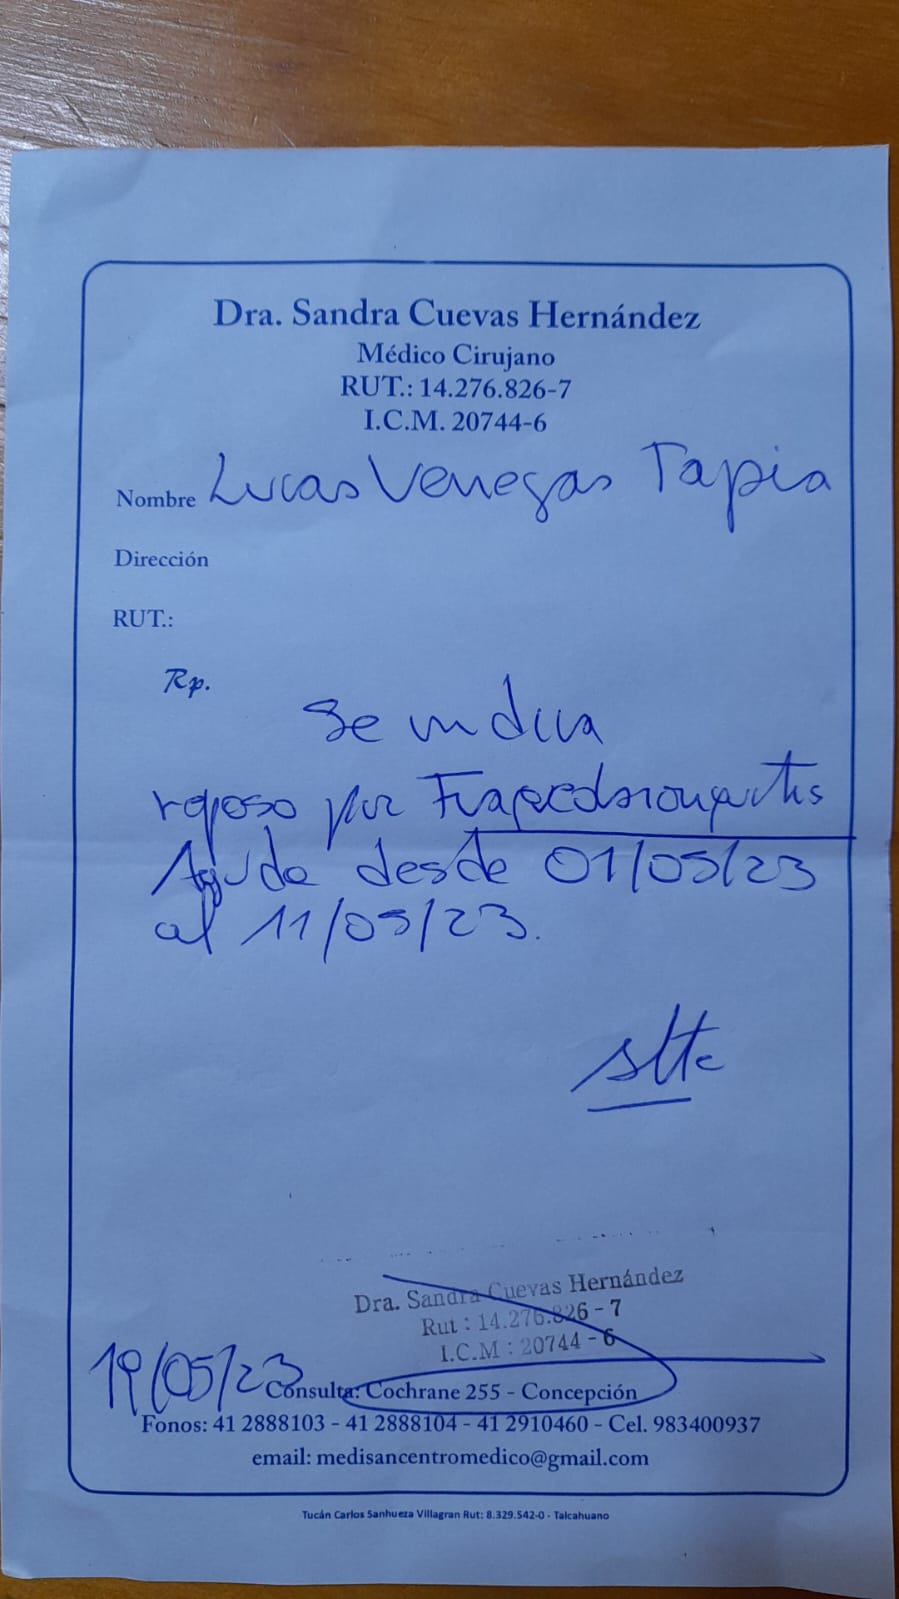 Dra. Sandra Cuevas Hernández
Médico Cirujano
RUT.: 14.276.826-7
I.C.M. 20744-6
Nombre Lucas Venegas Tapia
Dirección
RUT.:
Rp.
Se indica
reposo por
Aguda desde 01/05/23
al 11/05/23.
Dra. Sandra Cuevas Hernández
Rut : 14.276.826 - 7
I.C.M : 20744 - 6
19/05/23
Consulta: Cochrane 255 - Concepción
Fonos: 41 2888103 - 41 2888104 - 41 2910460 - Cel. 983400937
email: medisancentromedico@gmail.com
Tucán Carlos Sanhueza Villagran Rut: 8.329.542-0 - Talcahuano